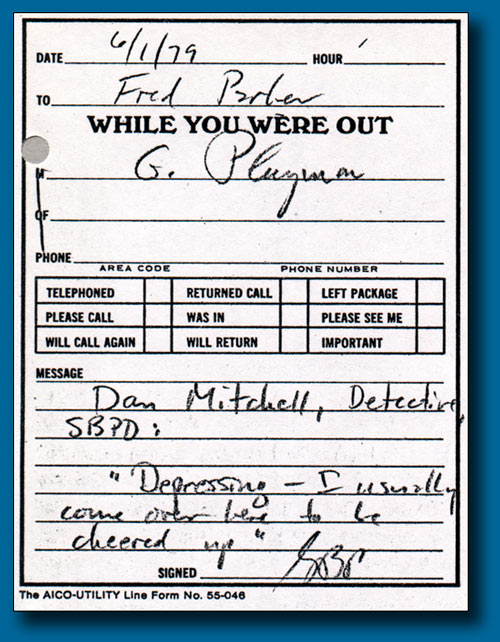 DATE 6/1/79 HOUR
TO Fred Parker
WHILE YOU WERE OUT
M G. Plugman
OF
PHONE
AREA CODE PHONE NUMBER
TELEPHONED RETURNED CALL LEFT PACKAGE
PLEASE CALL WAS IN PLEASE SEE ME
WILL CALL AGAIN WILL RETURN IMPORTANT
MESSAGE
Dan Mitchell, Detective,
SBPD:
"Depressing – I usually
come over here to be
cheered up"
SIGNED
The AICO-UTILITY Line Form No. 55-046